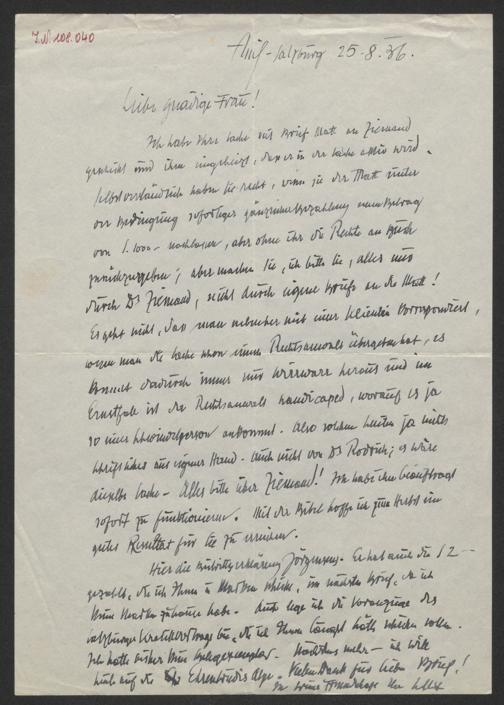 I.N. 108.040
Anif-Salzburg 25.8.36.
Liebe gnädige Frau!
Ich habe Ihre Sache mit Brief Matt an Ziemand
geschickt und ihm eingeheizt, dass er in der Sache aktiv wird.
Selbstverständlich haben Sie recht, wenn Sie der Matt unter
der Bedingung sofortiger gänzlicher Bezahlung einen Betrag
von S. 1000.- nachlassen, aber ohne ihr die Rechte am Buch
zurückzugeben; aber machen Sie, ich bitte Sie, alles nur
durch Dr Ziemand, nicht durch eigene Briefe an die Matt!
Es geht nicht, dass man nebenher mit einer Klientin korrespondiert,
wenn man die Sache schon einem Rechtsanwalt übergeben hat, es
kommt dadurch immer nur Wirrwarr heraus und im
Ernstfalle ist der Rechtsanwalt handicaped, worauf es ja
so einer Schwindelperson ankommt. Also solchen Leuten ja nichts
schriftliches aus eigener Hand. Auch nicht von Dr Rodrich; es wäre
dieselbe Sache - Alles bitte über Ziemand! Ich habe ihn beauftragt
sofort zu funktionieren. Mit der Bibel hoffe ich zum Herbst ein
gutes Resultat für Sie zu erzielen.
Hier die Beitrittserklärung Jörgensens. Er hat auch die S 2 -
gezahlt, die ich Ihnen in Marken schicke, im nächsten Brief, da ich
keine Marken zuhause habe. Auch lege ich die Voranzeige des
Salzburger bei, die ich Ihnen längst hätte schicken sollen.
Ich hatte bisher kein Belegexemplar. Nächstens mehr - ich will
auf die. Vielen Dank für lieben Brief!
Ihr